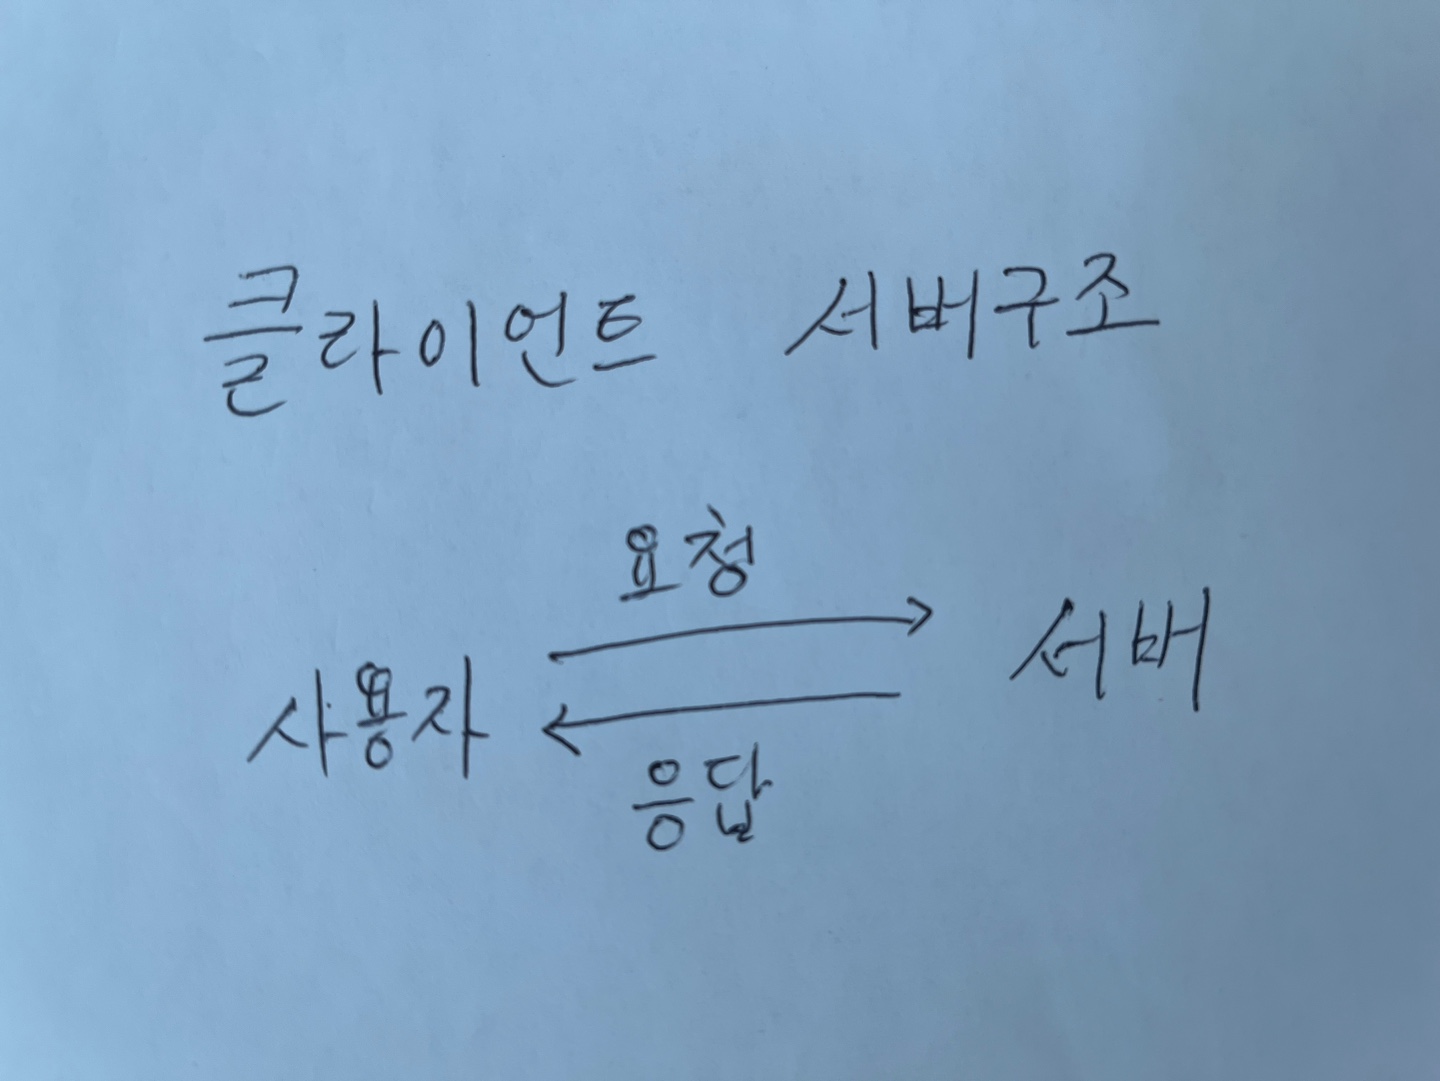 클라이언트 서버구조
요청
사용자 서버
응답